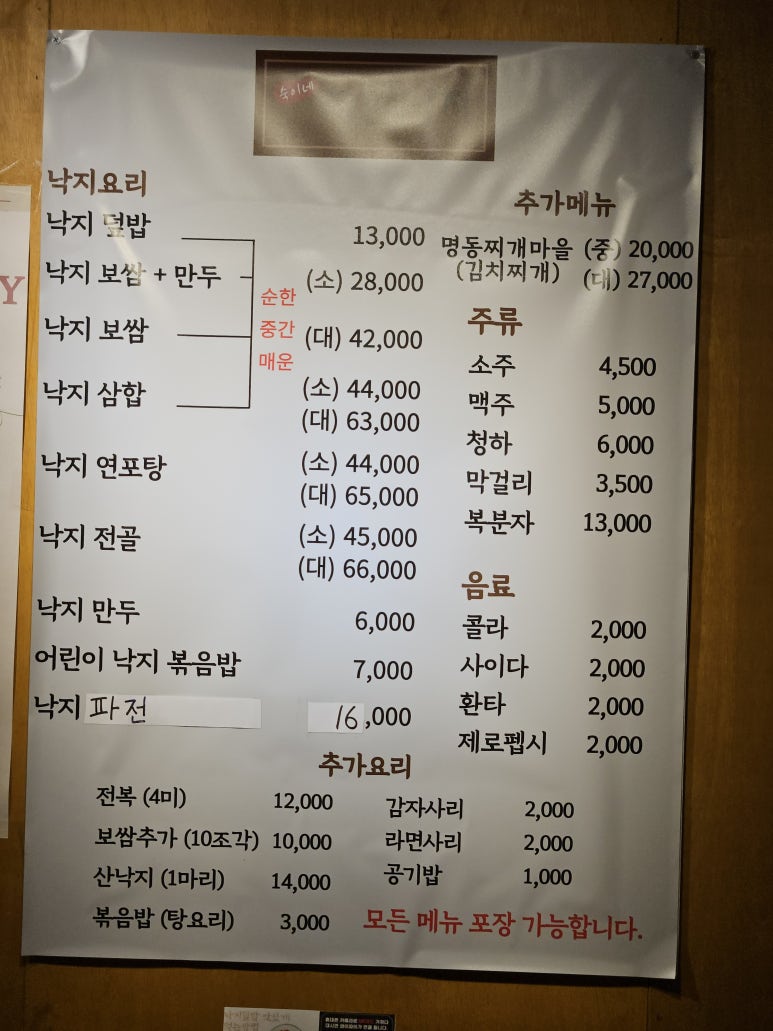 숙이네
낙지요리
낙지 덮밥 13,000
낙지 보쌈 + 만두 (소) 28,000
낙지 보쌈 (대) 42,000
순한
중간
매운
낙지 삼합 (소) 44,000
(대) 63,000
낙지 연포탕 (소) 44,000
(대) 65,000
낙지 전골 (소) 45,000
(대) 66,000
낙지 만두 6,000
어린이 낙지 볶음밥 7,000
낙지 파전 16,000
추가메뉴
명동찌개마을 (중) 20,000
(김치찌개) (대) 27,000
주류
소주 4,500
맥주 5,000
청하 6,000
막걸리 3,500
복분자 13,000
음료
콜라 2,000
사이다 2,000
환타 2,000
제로펩시 2,000
추가요리
전복 (4미) 12,000
보쌈추가 (10조각) 10,000
산낙지 (1마리) 14,000
볶음밥 (탕요리) 3,000
감자사리 2,000
라면사리 2,000
공기밥 1,000
모든 메뉴 포장 가능합니다.
Y